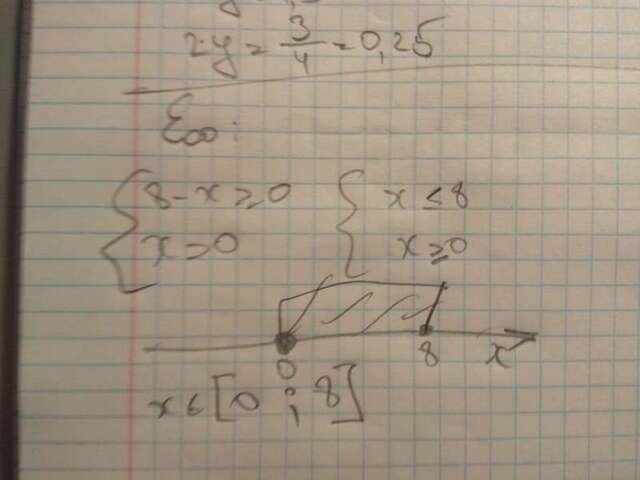 2y = 3/4 = 0,25
{8-x≥0 {x≤8
{x>0 {x≥0
0 8 x
x∈[0;8]